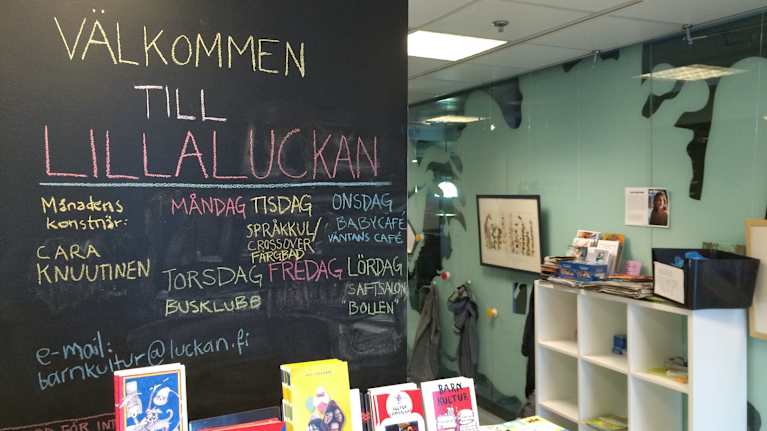 VÄLKOMMEN
TILL
LILLALUCKAN
Månadens
konstnär:
CARA
KNUUTINEN
MÅNDAG
TISDAG
SPRÅKKUL/
CROSSOVER
FÄRGBAD
ONSDAG
BABYCAFÉ
VÄNTANS CAFÉ
TORSDAG
BUSKLUBB
FREDAG
LÖRDAG
SAFTSALON
"BOLLEN"
e-mail:
barnkultur@luckan.fi
FÖR INT
BARN
KULTUR